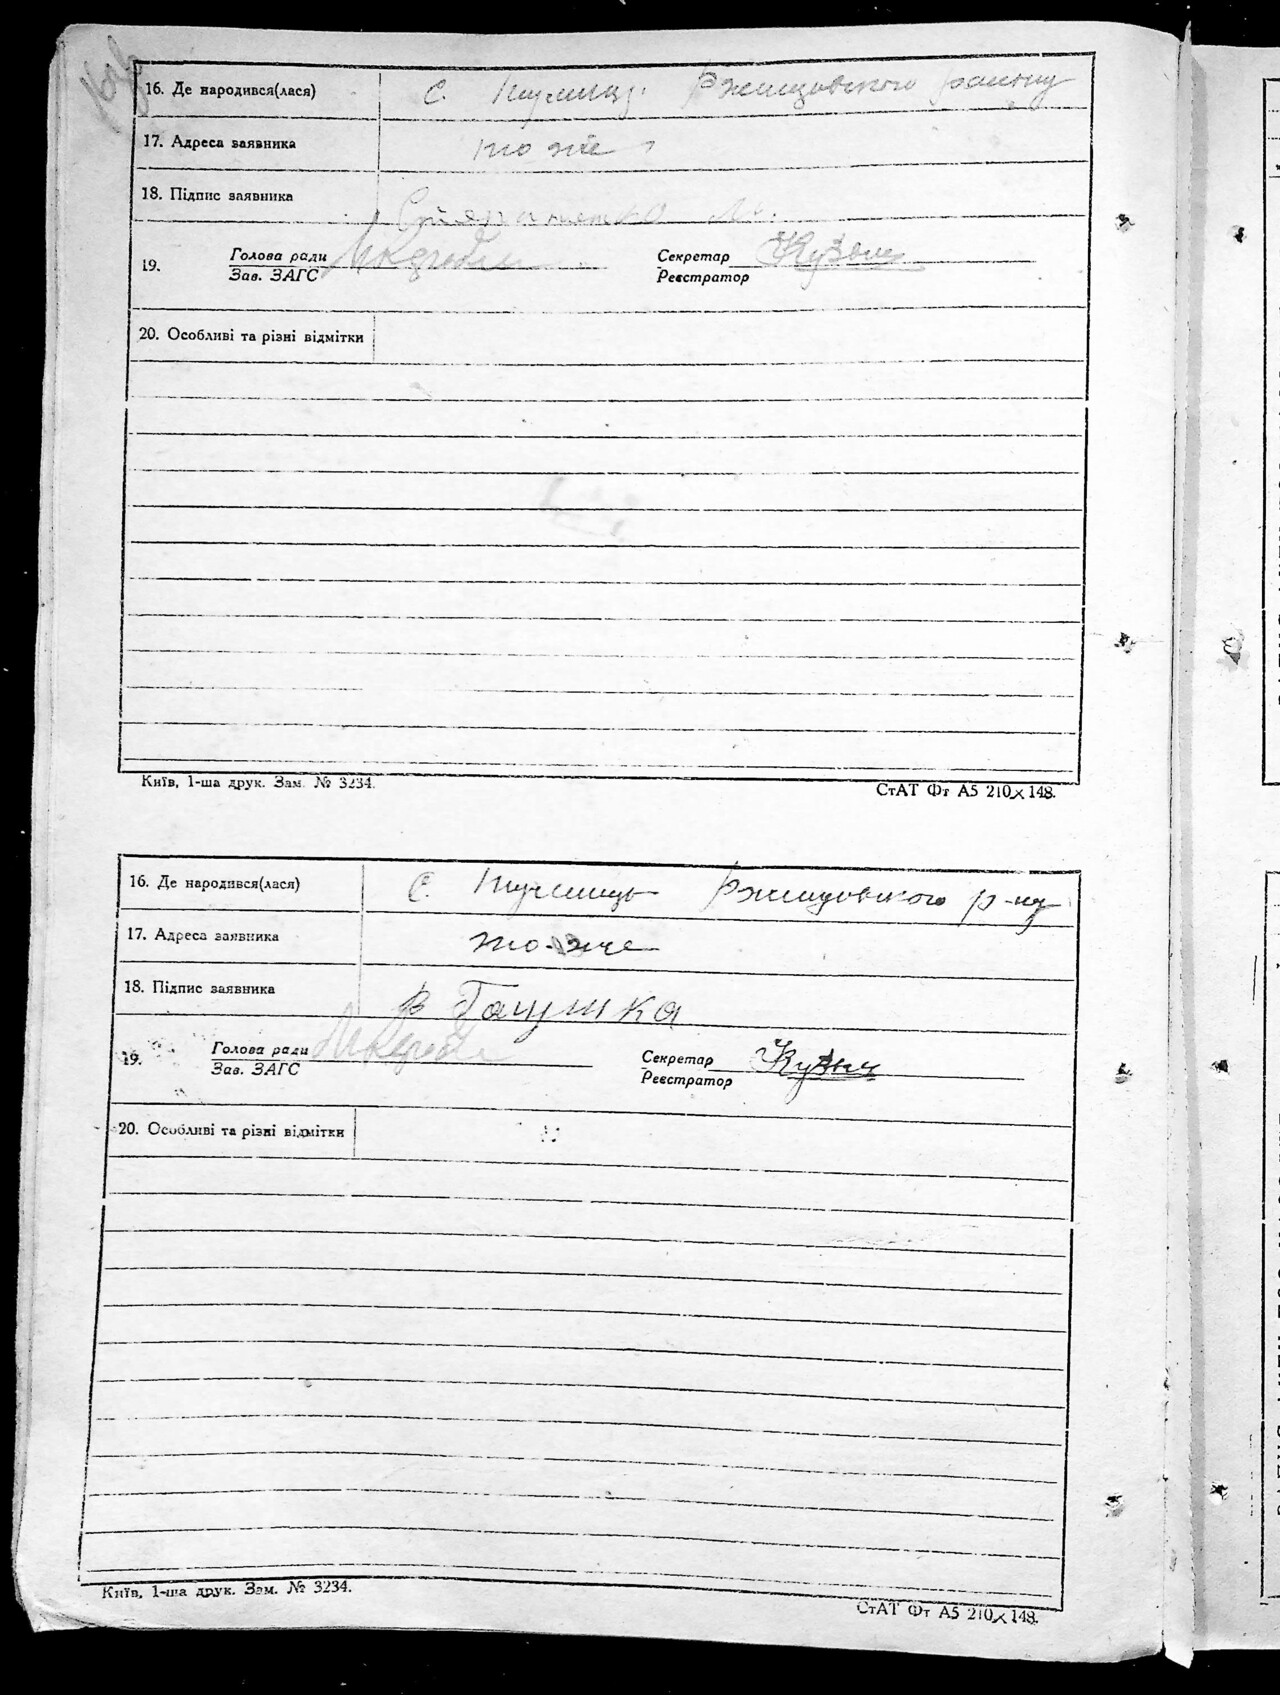 16. Де народився(лася) с. Пугминці Ржищовського району
17. Адреса заявника то же
18. Підпис заявника
19. Голова ради Секретар Кузьм
Зав. ЗАГС Реєстратор
20. Особливі та різні відмітки
Київ, 1-ша друк. Зам. № 3234. СтАТ Фт А5 210×148.
16. Де народився(лася) с. Ржищовського р-ну
17. Адреса заявника то-же
18. Підпис заявника В Галушка
19. Голова ради Секретар
Зав. ЗАГС Реєстратор
20. Особливі та різні відмітки
Київ, 1-ша друк. Зам. № 3234.
СтАТ Фт А5 210×148.